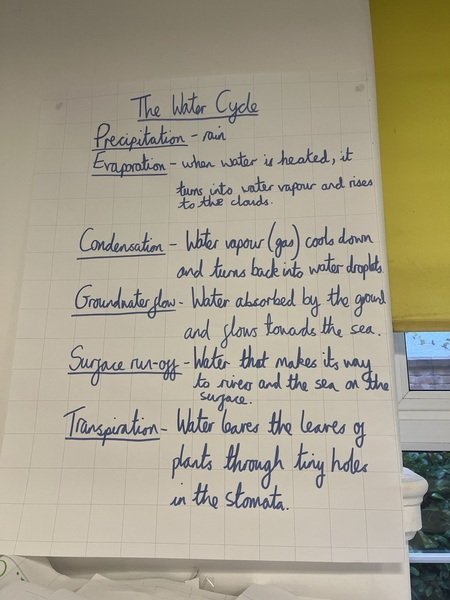 The Water Cycle
Precipitation - rain
Evaporation - when water is heated, it
turns into water vapour and rises
to the clouds.
Condensation - Water vapour (gas) cools down
and turns back into water droplets
Groundwater flow - Water absorbed by the ground
and flows towards the sea.
Surface run-off - Water that makes its way
to rivers and the sea on the
surface.
Transpiration - Water leaves the leaves of
plants through tiny holes
in the stomata.